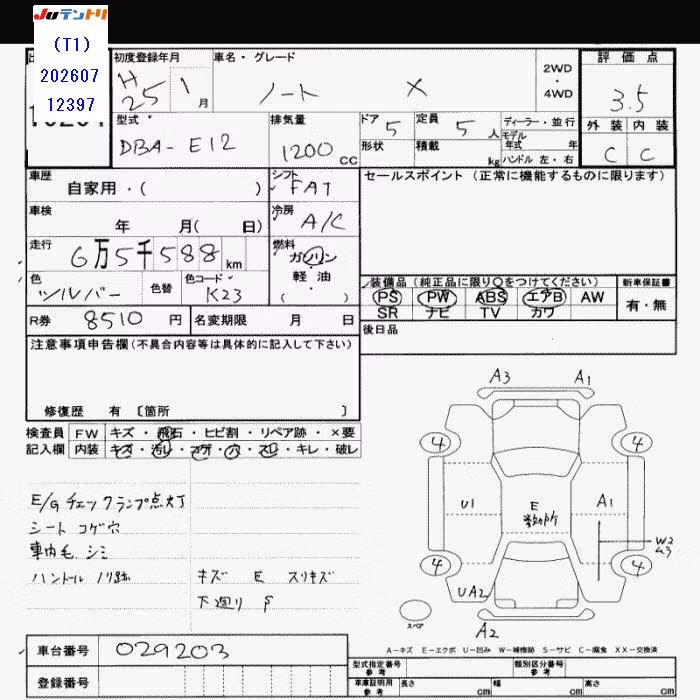 Juテントリ
(T1)
202607
12397
初度登録年月
H25 1月
車名・グレード
ノート X
2WD・4WD
評価点
3.5
外装 内装
C C
型式
DBA-E12
排気量
1200cc
ドア 5
定員 5人
形状
積載 kg
ディーラー・並行
モデル年式 年
ハンドル 左・右
車歴
自家用・( )
シフト
FAT
セールスポイント(正常に機能するものに限ります)
車検 年 月( 日)
冷房
A/C
走行
6万5千588km
燃料
ガソリン・軽・油
( )
色
シルバー
色替
色コード
K23
装備品(純正品に限り○をつけてください)
PS PW ABS エアB AW
SR ナビ TV カワ
新車保証書
有・無
R券 8510円
名変期限 月 日
後日品
注意事項申告欄(不具合内容等は具体的に記入して下さい)
修復歴 有 [箇所 ]
検査員記入欄
FW キズ・飛石・ヒビ割・リペア跡・×要
内装 キズ・汚レ・コゲ・穴・スレ・キレ・破レ
E/Gチェックランプ点灯
シート コゲ穴
車内毛 シミ
ハンドル ノリ跡
キズ E スリキズ
下廻り S
A3 A1
4 4
U1
E
数ヶ所
A1
W2
4 4
UA2
A2
スペア
A-キズ E-エクボ U-凹み W-補修跡 S-サビ C-腐食 XX-交換済
車台番号 029203
登録番号
型式指定番号 参考
類別区分番号 参考
車庫証明用 参考
長さ cm
幅 cm
高さ cm